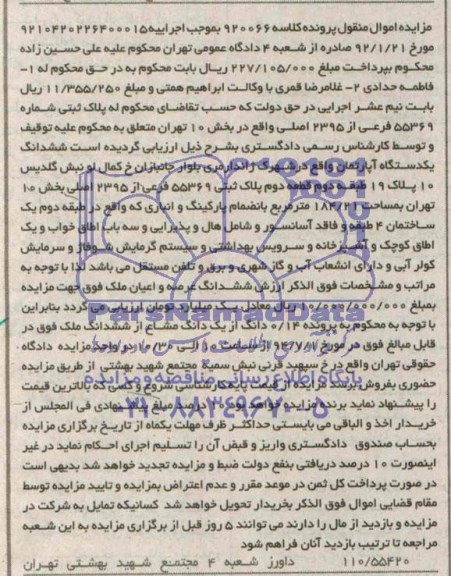 مزایده اموال منقول پرونده کلاسه ۹۲۰۰۶۶ بموجب اجراییه ۹۲۱۰۴۲۰۲۲۶۴۰۰۰۱۵
مورخ ۹۲/۱/۲۱ صادره از شعبه ۴ دادگاه عمومی تهران محکوم علیه علی حسین زاده
محکوم بپرداخت مبلغ ۲۲۷/۱۰۵/۰۰۰ ریال بابت محکوم به در حق محکوم له ۱-
فاطمه حدادی ۲- غلامرضا قمری با وکالت ابراهیم همتی و مبلغ ۱۱/۳۵۵/۲۵۰ ریال
بابت نیم عشر اجرایی در حق دولت که حسب تقاضای محکوم له پلاک ثبتی شماره
۵۵۳۶۹ فرعی از ۲۳۹۵ اصلی واقع در بخش ۱۰ تهران متعلق به محکوم علیه توقیف
و توسط کارشناس رسمی دادگستری بشرح ذیل ارزیابی گردیده است ششدانگ
یکدستگاه آپارتمان واقع در شهرک ژاندارمری بلوار جانبازان خ کمال لو نبش گلدیس
۱۰ پلاک ۱۹ طبقه دوم قطعه دوم پلاک ثبتی ۵۵۳۶۹ فرعی از ۲۳۹۵ اصلی بخش ۱۰
تهران بمساحت ۱۸۴/۲۱ مترمربع بانضمام پارکینگ و انباری که واقع در طبقه دوم یک
ساختمان ۴ طبقه و فاقد آسانسور و شامل هال و پذیرایی و سه باب اطاق خواب و یک
اطاق کوچک و آشپزخانه و سرویس بهداشتی و سیستم گرمایش شوفاژ و سرمایش
کولر آبی و دارای انشعاب آب و گاز شهری و برق و تلفن مستقل می باشد لذا با توجه به
مراتب و مشخصات فوق الذکر ارزش ششدانگ عرصه و اعیان ملک فوق جهت مزایده
بمبلغ ۱۰/۰۰۰/۰۰۰/۰۰۰ ریال معادل یک میلیارد تومان ارزیابی می گردد بنابراین
با توجه به محکوم به پرونده ۰/۱۴ دانگ از یک دانگ مشاع از ششدانگ ملک فوق در
قابل مبالغ فوق در مورخ ۹۴/۷/۱ از ساعت ۱۰ الی ۱۰/۳۰ در واحد مزایده دادگاه
حقوقی تهران واقع در خ سپهبد قرنی نبش سمیه مجتمع شهید بهشتی از طریق مزایده
حضوری بفروش برسد مزایده از قیمت پایه کارشناسی شروع و کسی که بالاترین قیمت
را پیشنهاد نماید برنده مزایده خواهد بود ۱۰ درصد مبلغ پیشنهادی فی المجلس از
خریدار اخذ و الباقی می بایستی حداکثر ظرف مهلت یکماه از تاریخ برگزاری مزایده
بحساب صندوق دادگستری واریز و قبض آن را تسلیم اجرای احکام نماید در غیر
اینصورت ۱۰ درصد دریافتی بنفع دولت ضبط و مزایده تجدید خواهد شد بدیهی است
در صورت پرداخت کل ثمن در موعد مقرر و عدم اعتراض بمزایده و تایید مزایده توسط
مقام قضایی اموال فوق الذکر بخریدار تحویل خواهد شد کسانیکه تمایل به شرکت در
مزایده و بازدید از مال را دارند می توانند ۵ روز قبل از برگزاری مزایده به این شعبه
مراجعه تا ترتیب بازدید آنان فراهم شود
۱۱۰/۵۵۴۲۰ داورز شعبه ۴ مجتمع شهید بهشتی تهران
ParsNamadData
۰۲۱-۸۸۳۴۹۶۷۰-۵